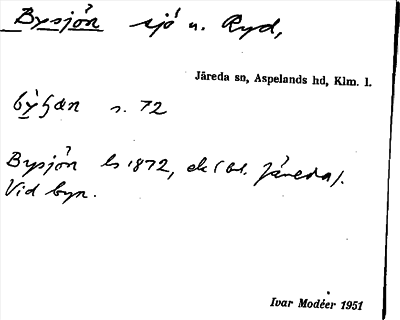 Bysjön sjö n. Ryd,
Järeda sn, Aspelands hd, Klm. l.
s. 72
Bysjön ls 1872, ek (bl. Järeda).
Vid byn.
Ivar Modéer 1951